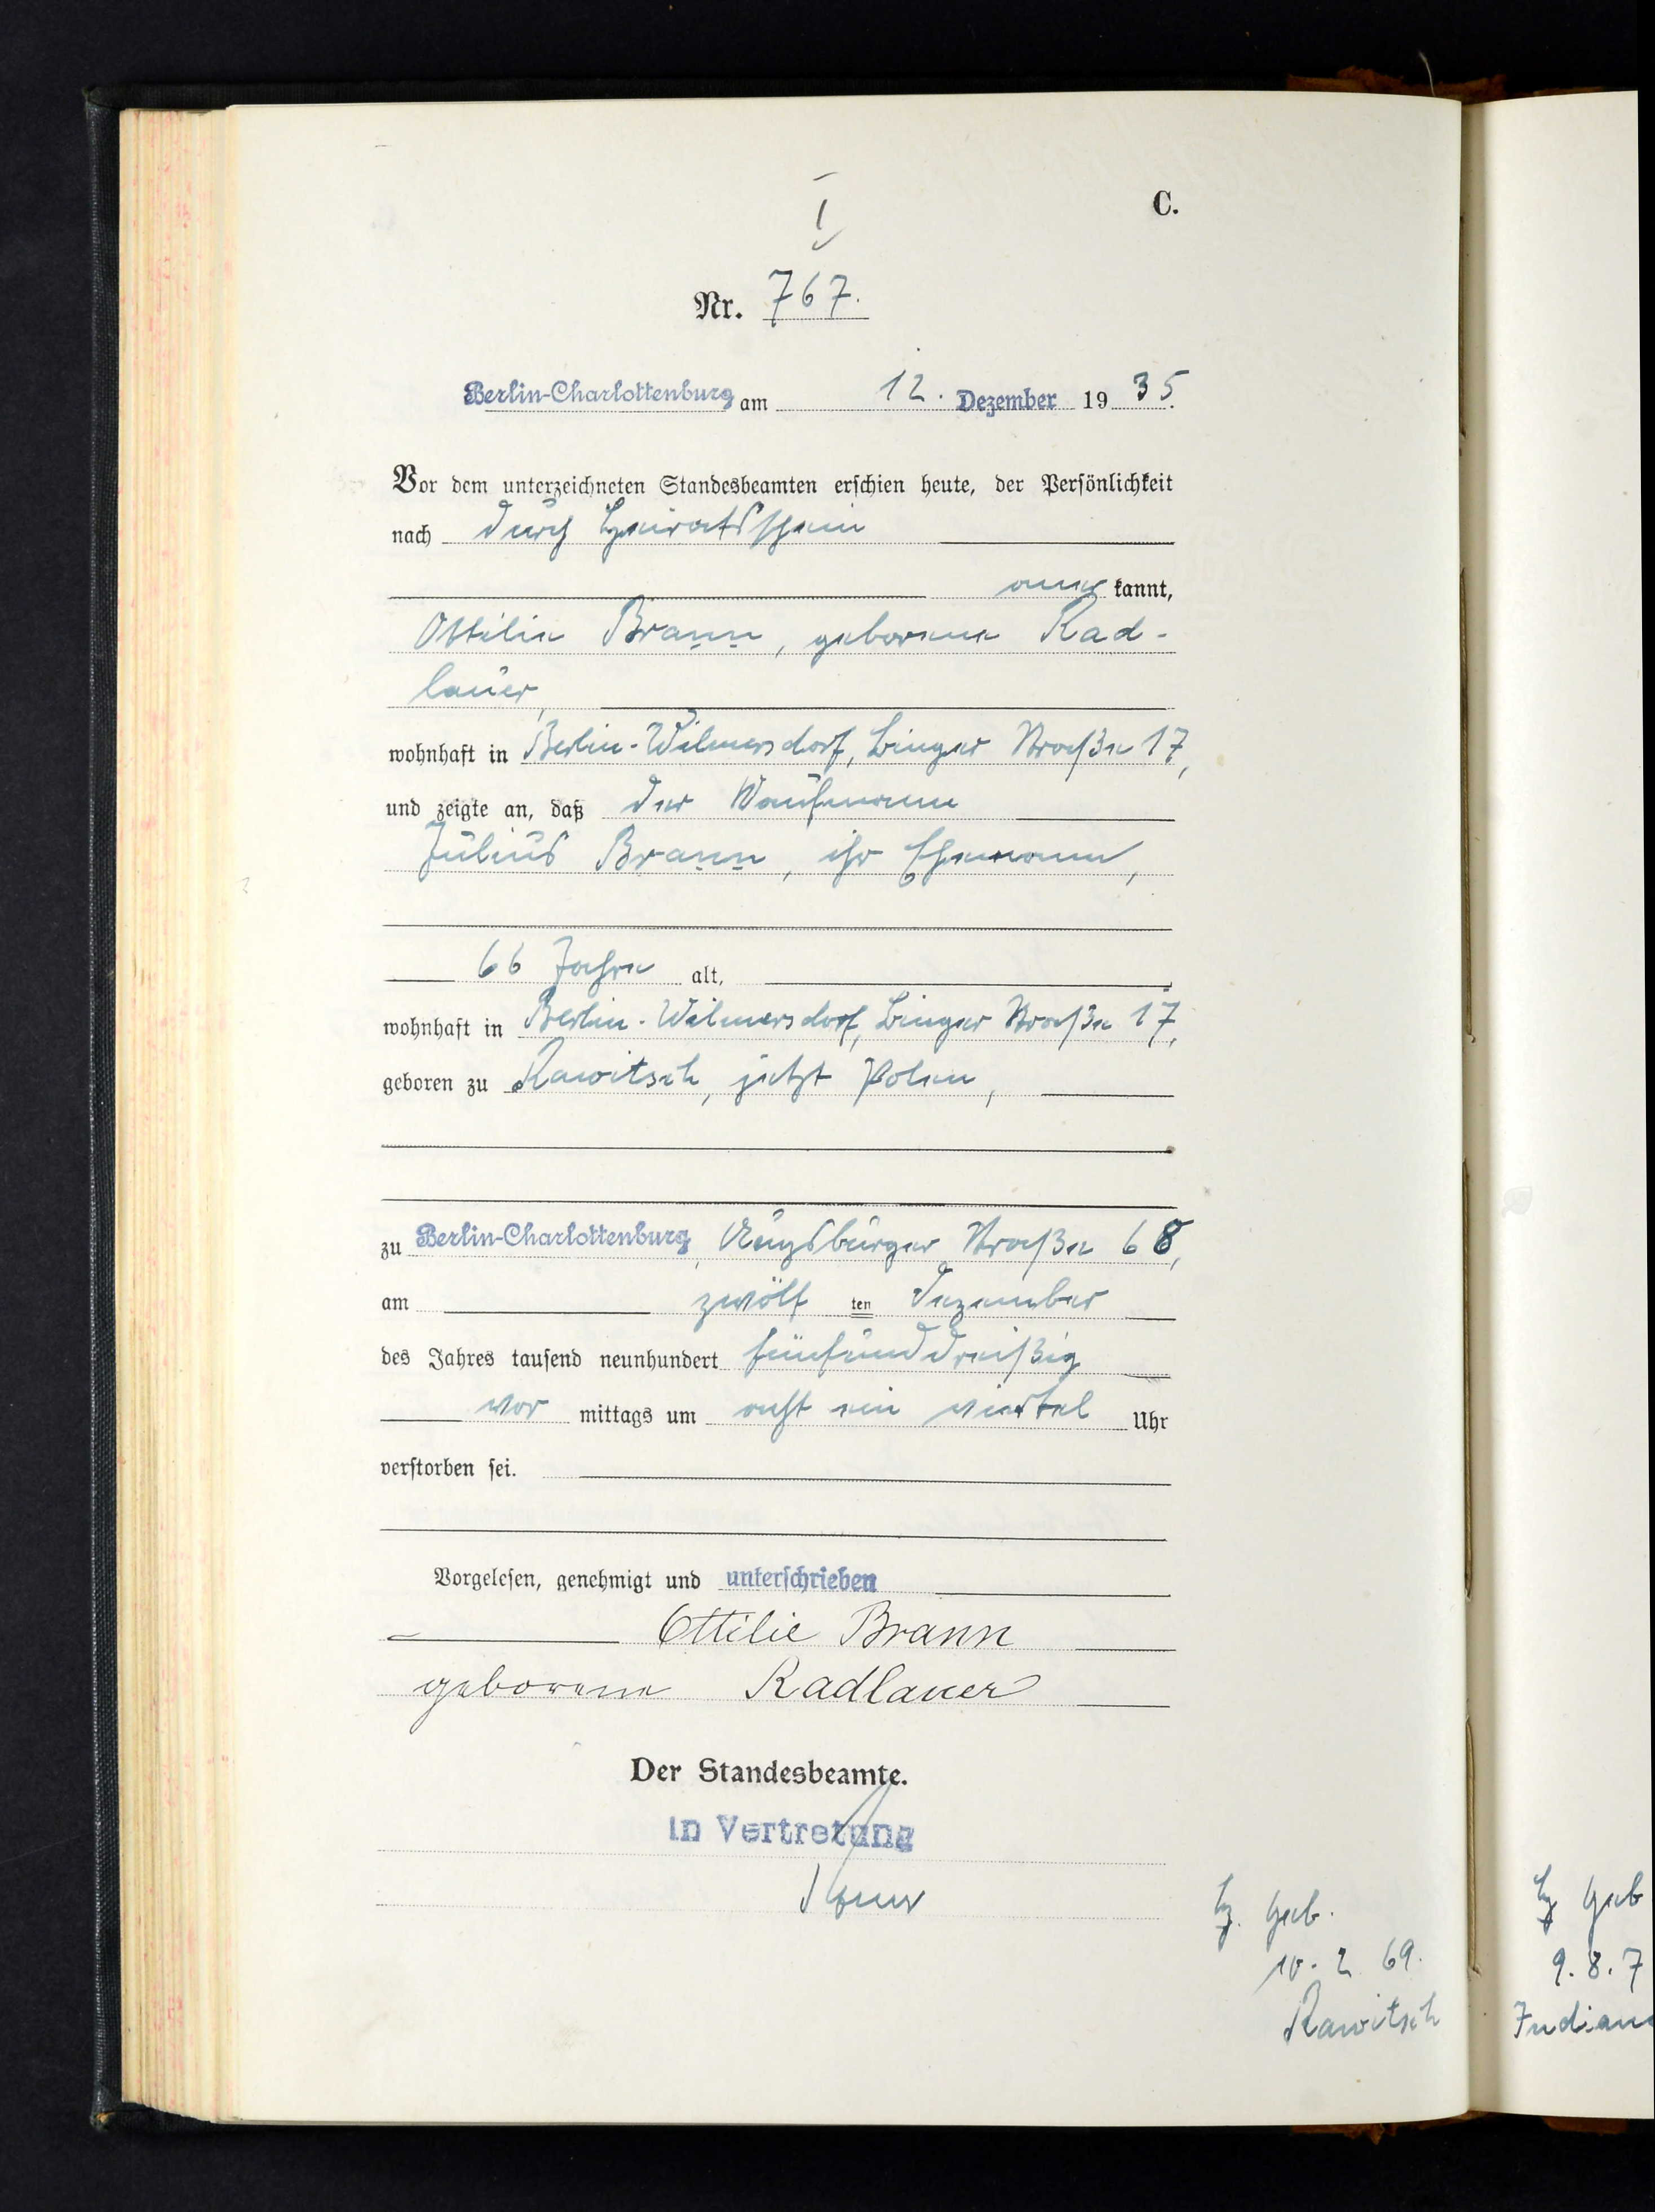 C.
I
Nr. 767.
Berlin-Charlottenburg am 12. Dezember 1935.
Vor dem unterzeichneten Standesbeamten erschien heute, der Persönlichkeit
nach durch Heiratsschein
aner kannt,
Ottilie Brann, geborene Rad-
lauer,
wohnhaft in Berlin-Wilmersdorf, Binger Straße 17,
und zeigte an, daß der Kaufmann
Julius Brann, ihr Ehemann,
66 Jahre alt,
wohnhaft in Berlin-Wilmersdorf, Binger Straße 17,
geboren zu Rawitsch, jetzt Polen,
zu Berlin-Charlottenburg, Augsburger Straße 68,
am zwölf ten Dezember
des Jahres tausend neunhundert fünfunddreißig
vor mittags um acht ein viertel Uhr
verstorben sei.
Vorgelesen, genehmigt und unterschrieben
Ottilie Brann
geborene Radlauer
Der Standesbeamte.
In Vertretung
Geb.
10. 2 69.
Rawitsch
Geb
9. 8. 7